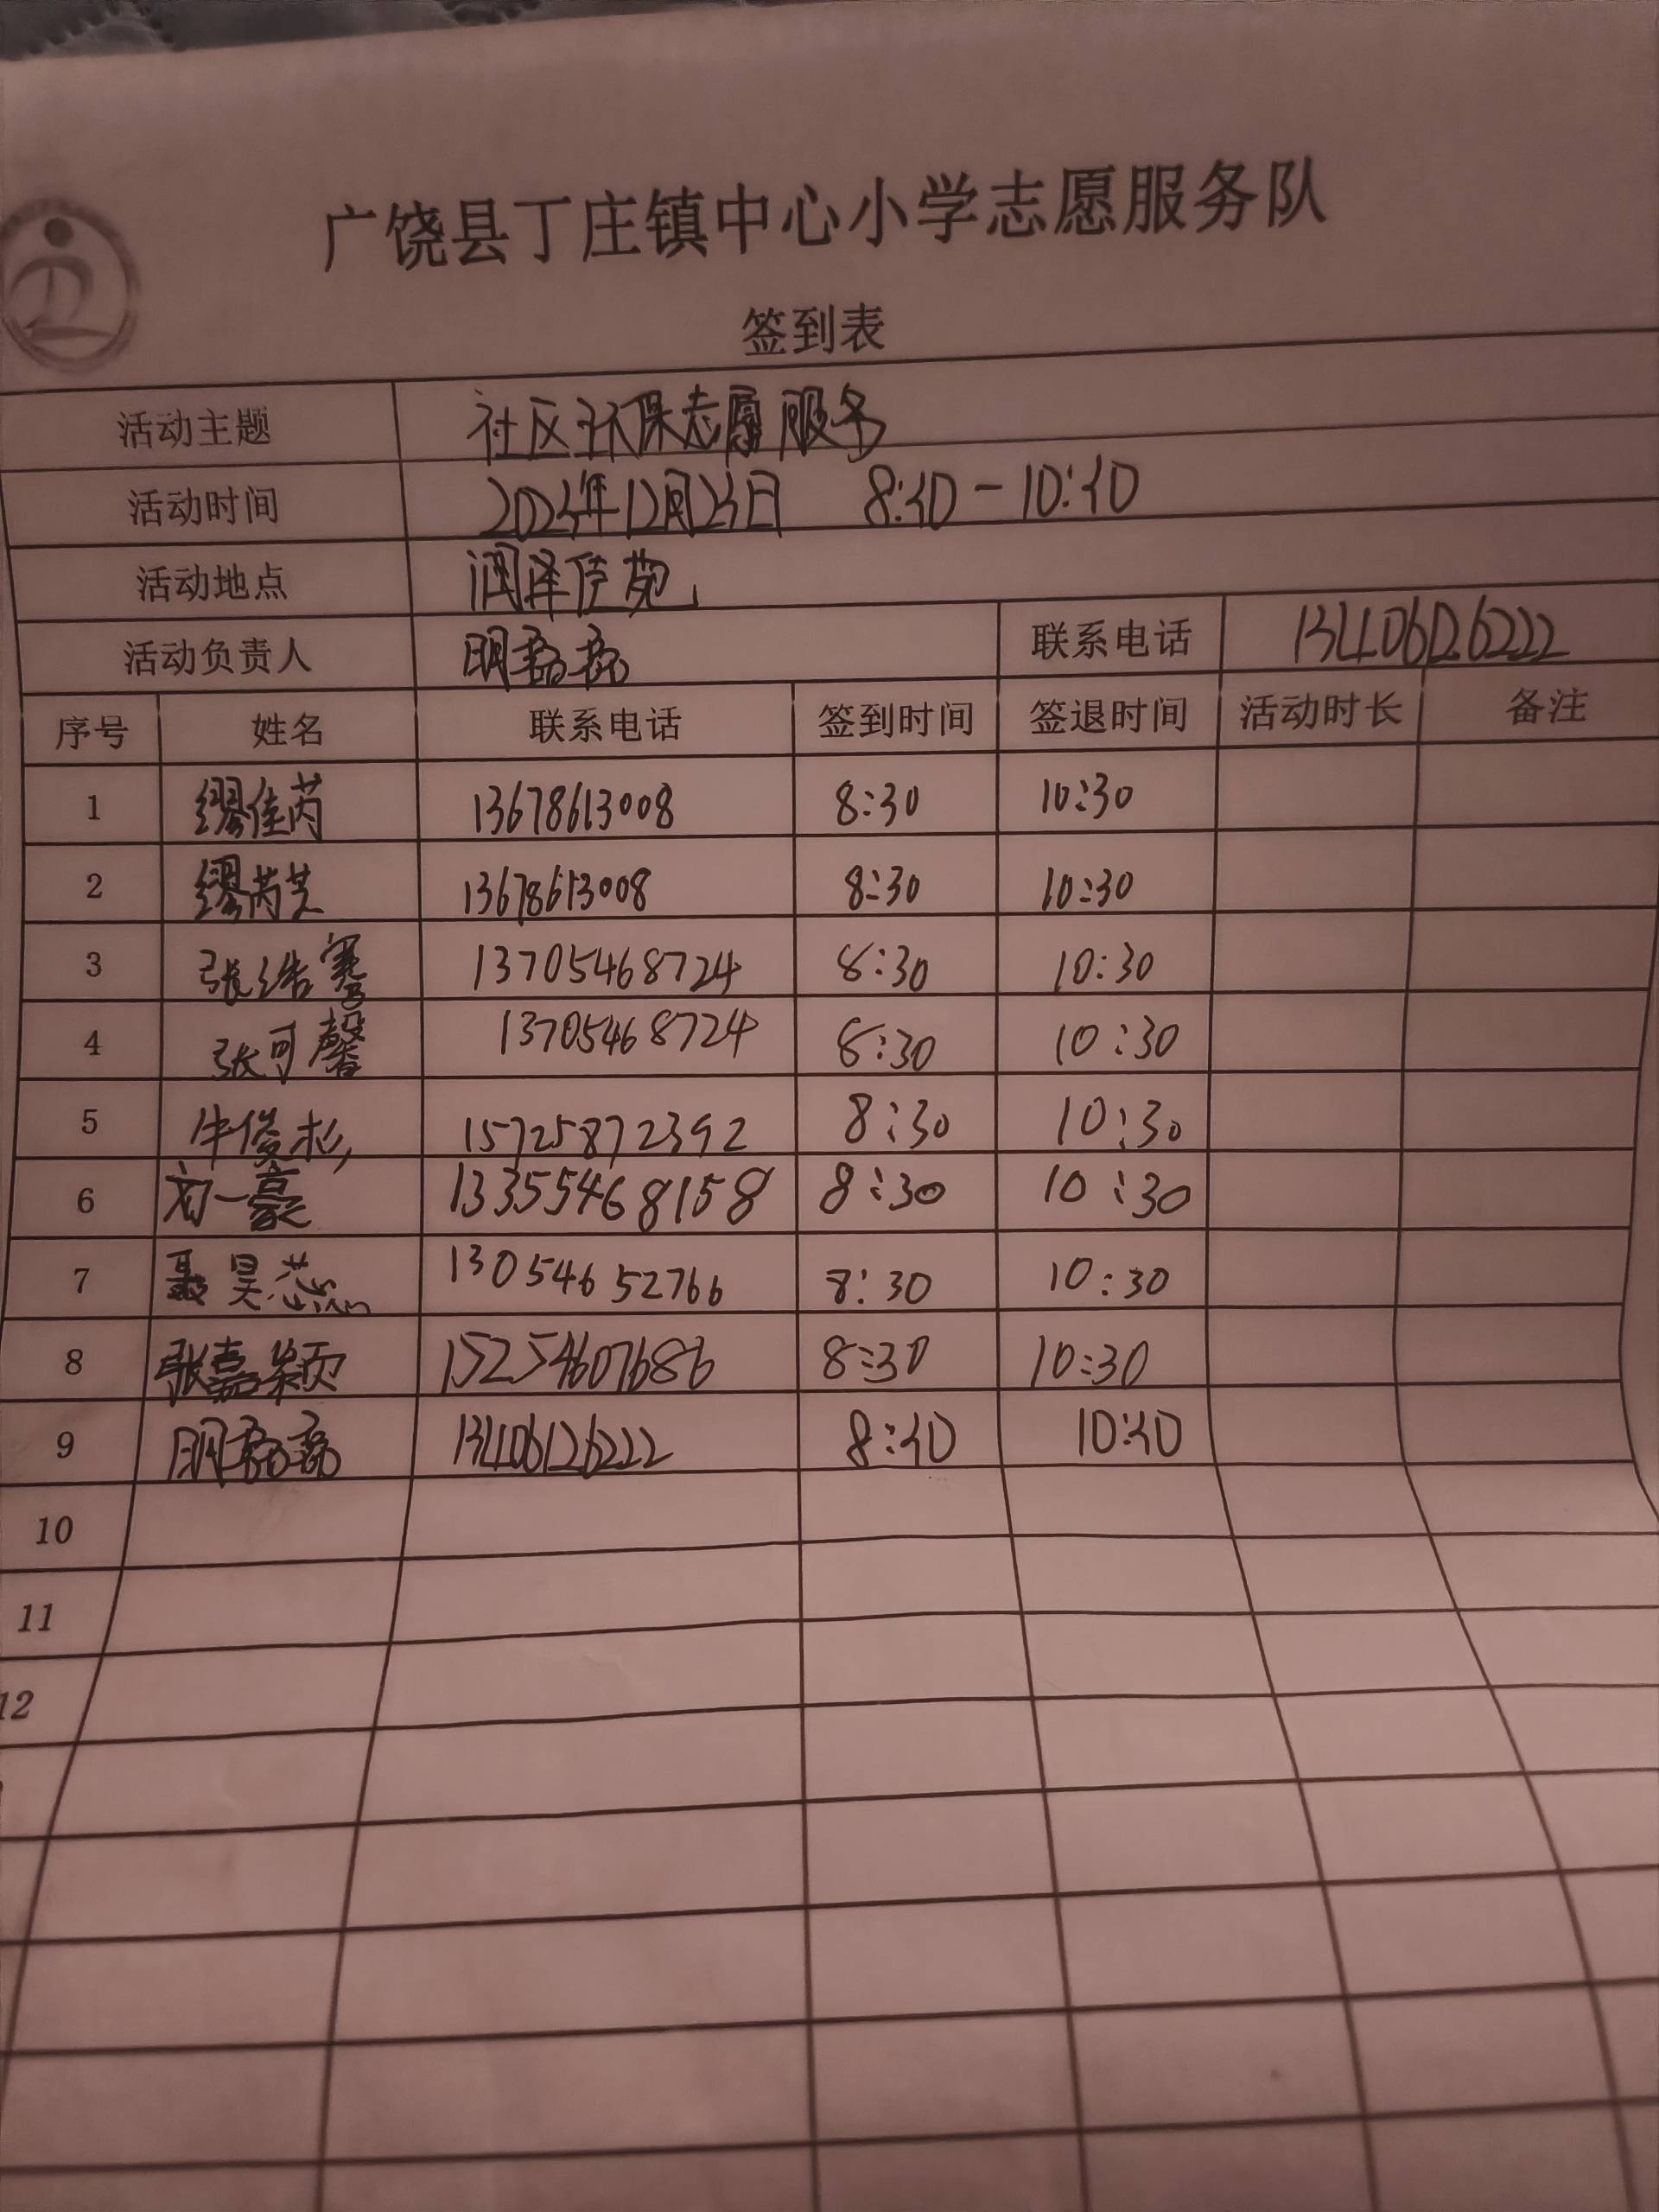 广饶县丁庄镇中心小学志愿服务队
签到表
活动主题 社区环保志愿服务
活动时间 2023年12月23日 8:30-10:30
活动地点 润泽佳苑
活动负责人 明磊磊 联系电话 13406126222
序号 姓名 联系电话 签到时间 签退时间 活动时长 备注
1 缪佳芮 13678613008 8:30 10:30
2 缪芮芝 13678613008 8:30 10:30
3 张浩骞 13705468724 8:30 10:30
4 张可馨 13705468724 8:30 10:30
5 牛俊杉 15725872392 8:30 10:30
6 刘一豪 13355468158 8:30 10:30
7 聂昊蕊 13054652766 8:30 10:30
8 张嘉颖 15254607686 8:30 10:30
9 明磊磊 13406126222 8:30 10:30
10
11
12